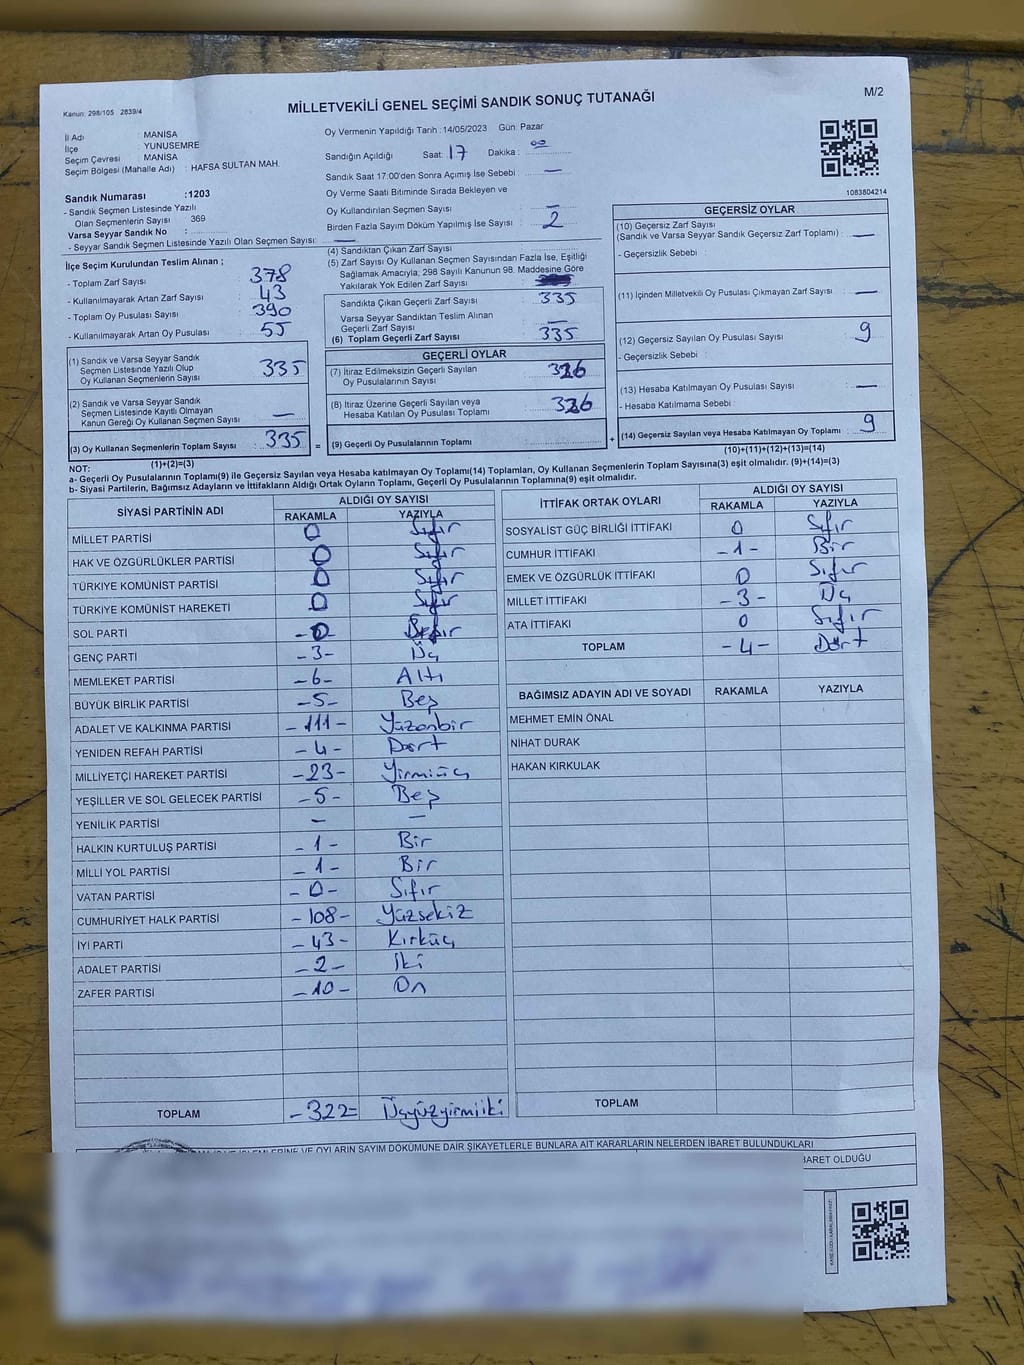 Kanun: 298/105 2839/4
MİLLETVEKİLİ GENEL SEÇİMİ SANDIK SONUÇ TUTANAĞI
M/2
İl Adı MANİSA
İlçe : YUNUSEMRE
Seçim Çevresi MANİSA
Seçim Bölgesi (Mahalle Adı) : HAFSA SULTAN MAH.
Sandık Numarası :1203
- Sandık Seçmen Listesinde Yazılı
Olan Seçmenlerin Sayısı : 369
Varsa Seyyar Sandık No :
- Seyyar Sandık Seçmen Listesinde Yazılı Olan Seçmen Sayısı: —
Oy Vermenin Yapıldığı Tarih :14/05/2023 Gün: Pazar
Sandığın Açıldığı Saat: 17 Dakika : 00
Sandık Saat 17:00'den Sonra Açımış İse Sebebi : —
Oy Verme Saati Bitiminde Sırada Bekleyen ve
Oy Kullandırılan Seçmen Sayısı : —
Birden Fazla Sayım Döküm Yapılmış İse Sayısı : 2
1083804214
İlçe Seçim Kurulundan Teslim Alınan ;
- Toplam Zarf Sayısı : 378
- Kullanılmayarak Artan Zarf Sayısı : 43
- Toplam Oy Pusulası Sayısı : 390
- Kullanılmayarak Artan Oy Pusulası : 55
(1) Sandık ve Varsa Seyyar Sandık
Seçmen Listesinde Yazılı Olup
Oy Kullanan Seçmenlerin Sayısı : 335
(2) Sandık ve Varsa Seyyar Sandık
Seçmen Listesinde Kayıtlı Olmayan
Kanun Gereği Oy Kullanan Seçmen Sayısı : —
(3) Oy Kullanan Seçmenlerin Toplam Sayısı : 335 =
(1)+(2)=(3)
(4) Sandıktan Çıkan Zarf Sayısı :
(5) Zarf Sayısı Oy Kullanan Seçmen Sayısından Fazla İse, Eşitliği
Sağlamak Amacıyla; 298 Sayılı Kanunun 98. Maddesine Göre
Yakılarak Yok Edilen Zarf Sayısı :
Sandıkta Çıkan Geçerli Zarf Sayısı : 335
Varsa Seyyar Sandıktan Teslim Alınan
Geçerli Zarf Sayısı : —
(6) Toplam Geçerli Zarf Sayısı : 335
GEÇERLİ OYLAR
(7) İtiraz Edilmeksizin Geçerli Sayılan
Oy Pusulalarının Sayısı : 326
(8) İtiraz Üzerine Geçerli Sayılan veya
Hesaba Katılan Oy Pusulası Toplamı : 326
(9) Geçerli Oy Pusulalarının Toplamı : +
GEÇERSİZ OYLAR
(10) Geçersiz Zarf Sayısı
(Sandık ve Varsa Seyyar Sandık Geçersiz Zarf Toplamı) : —
- Geçersizlik Sebebi :
(11) İçinden Milletvekili Oy Pusulası Çıkmayan Zarf Sayısı : —
(12) Geçersiz Sayılan Oy Pusulası Sayısı : 9
- Geçersizlik Sebebi :
(13) Hesaba Katılmayan Oy Pusulası Sayısı : —
- Hesaba Katılmama Sebebi :
(14) Geçersiz Sayılan veya Hesaba Katılmayan Oy Toplamı : 9
(10)+(11)+(12)+(13)=(14)
NOT:
a- Geçerli Oy Pusulalarının Toplamı(9) ile Geçersiz Sayılan veya Hesaba katılmayan Oy Toplamı(14) Toplamları, Oy Kullanan Seçmenlerin Toplam Sayısına(3) eşit olmalıdır. (9)+(14)=(3)
b- Siyasi Partilerin, Bağımsız Adayların ve İttifakların Aldığı Ortak Oyların Toplamı, Geçerli Oy Pusulalarının Toplamına(9) eşit olmalıdır.
SİYASİ PARTİNİN ADI ALDIĞI OY SAYISI
RAKAMLA YAZIYLA
MİLLET PARTİSİ 0 Sıfır
HAK VE ÖZGÜRLÜKLER PARTİSİ 0 Sıfır
TÜRKİYE KOMÜNİST PARTİSİ 0 Sıfır
TÜRKİYE KOMÜNİST HAREKETİ 0 Sıfır
SOL PARTİ -0
GENÇ PARTİ -3- Üç
MEMLEKET PARTİSİ -6- Altı
BÜYÜK BİRLİK PARTİSİ -5- Beş
ADALET VE KALKINMA PARTİSİ -111- Yüzonbir
YENİDEN REFAH PARTİSİ -4- Dört
MİLLİYETÇİ HAREKET PARTİSİ -23- Yirmiüç
YEŞİLLER VE SOL GELECEK PARTİSİ -5- Beş
YENİLİK PARTİSİ — —
HALKIN KURTULUŞ PARTİSİ -1- Bir
MİLLİ YOL PARTİSİ -1- Bir
VATAN PARTİSİ -0- Sıfır
CUMHURİYET HALK PARTİSİ -108- Yüzsekiz
İYİ PARTİ -43- Kırküç
ADALET PARTİSİ -2- İki
ZAFER PARTİSİ -10- On
TOPLAM -322= Üçyüzyirmiiki
İTTİFAK ORTAK OYLARI ALDIĞI OY SAYISI
RAKAMLA YAZIYLA
SOSYALİST GÜÇ BİRLİĞİ İTTİFAKI 0 Sıfır
CUMHUR İTTİFAKI -1- Bir
EMEK VE ÖZGÜRLÜK İTTİFAKI 0 Sıfır
MİLLET İTTİFAKI -3- Üç
ATA İTTİFAKI 0 Sıfır
TOPLAM -4- Dört
BAĞIMSIZ ADAYIN ADI VE SOYADI RAKAMLA YAZIYLA
MEHMET EMİN ÖNAL
NİHAT DURAK
HAKAN KIRKULAK
TOPLAM
VE OYLARIN SAYIM DÖKÜMÜNE DAİR ŞİKAYETLERLE BUNLARA AİT KARARLARIN NELERDEN İBARET BULUNDUKLARI
BARET OLDUĞU